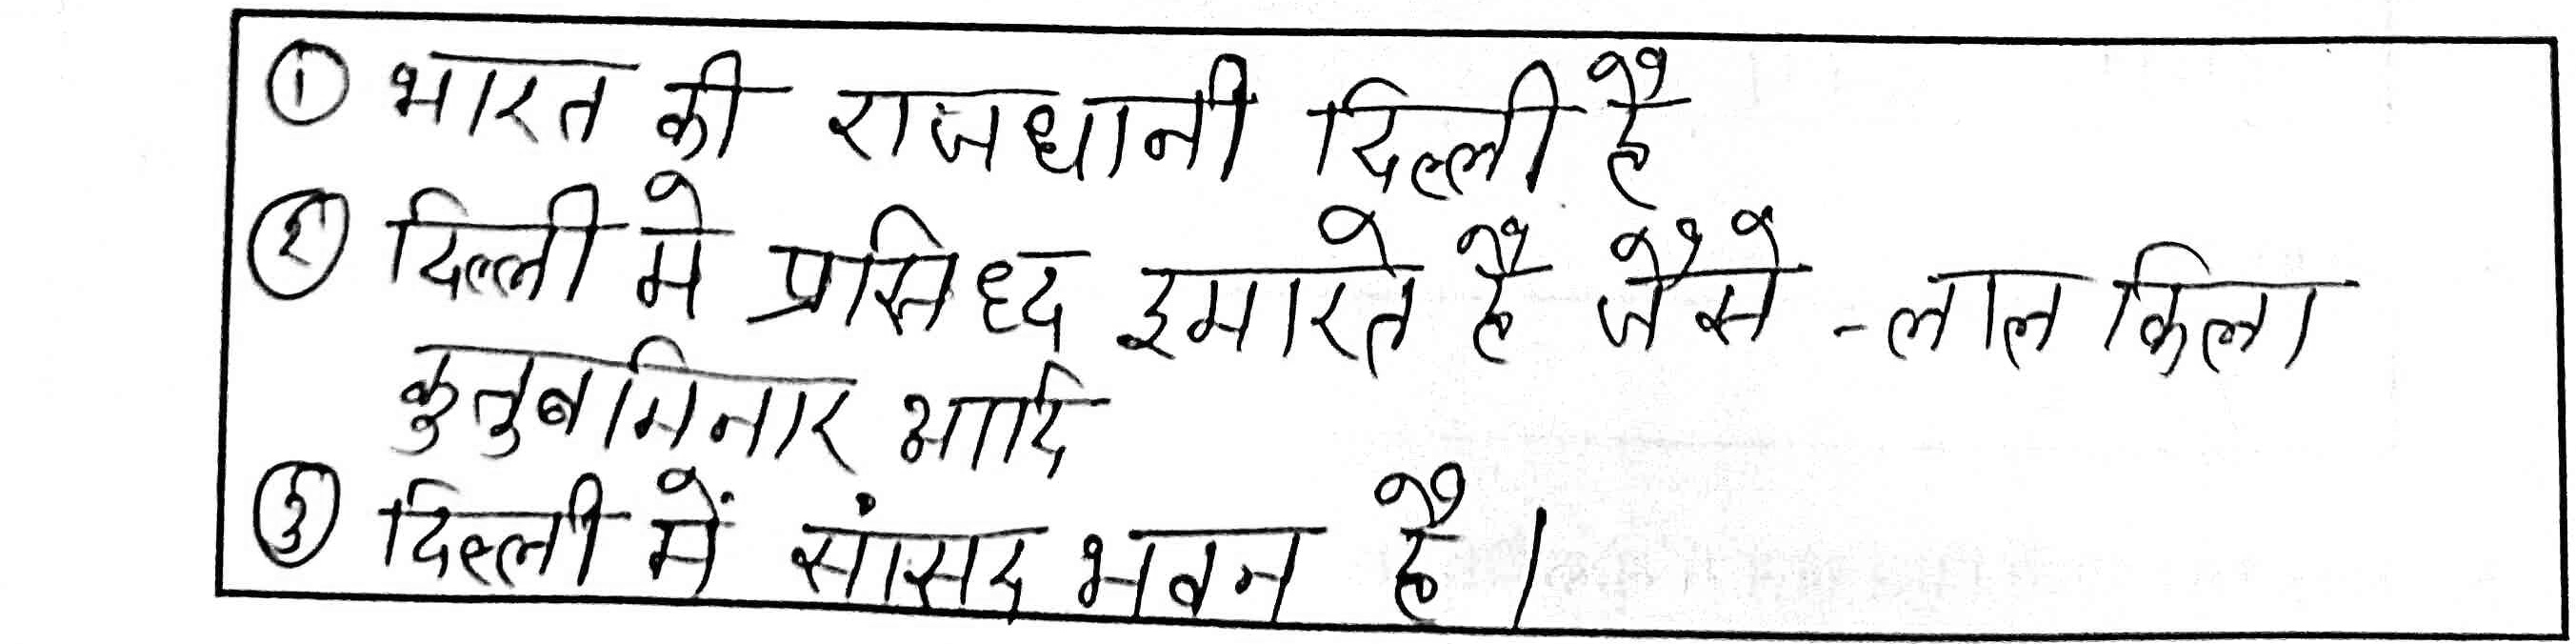 ① भारत की राजधानी दिल्ली है
② दिल्ली मे प्रसिध्द इमारते है जैसे - लाल किला
कुतुबमिनार आदि
③ दिल्ली में सांसद भवन है।